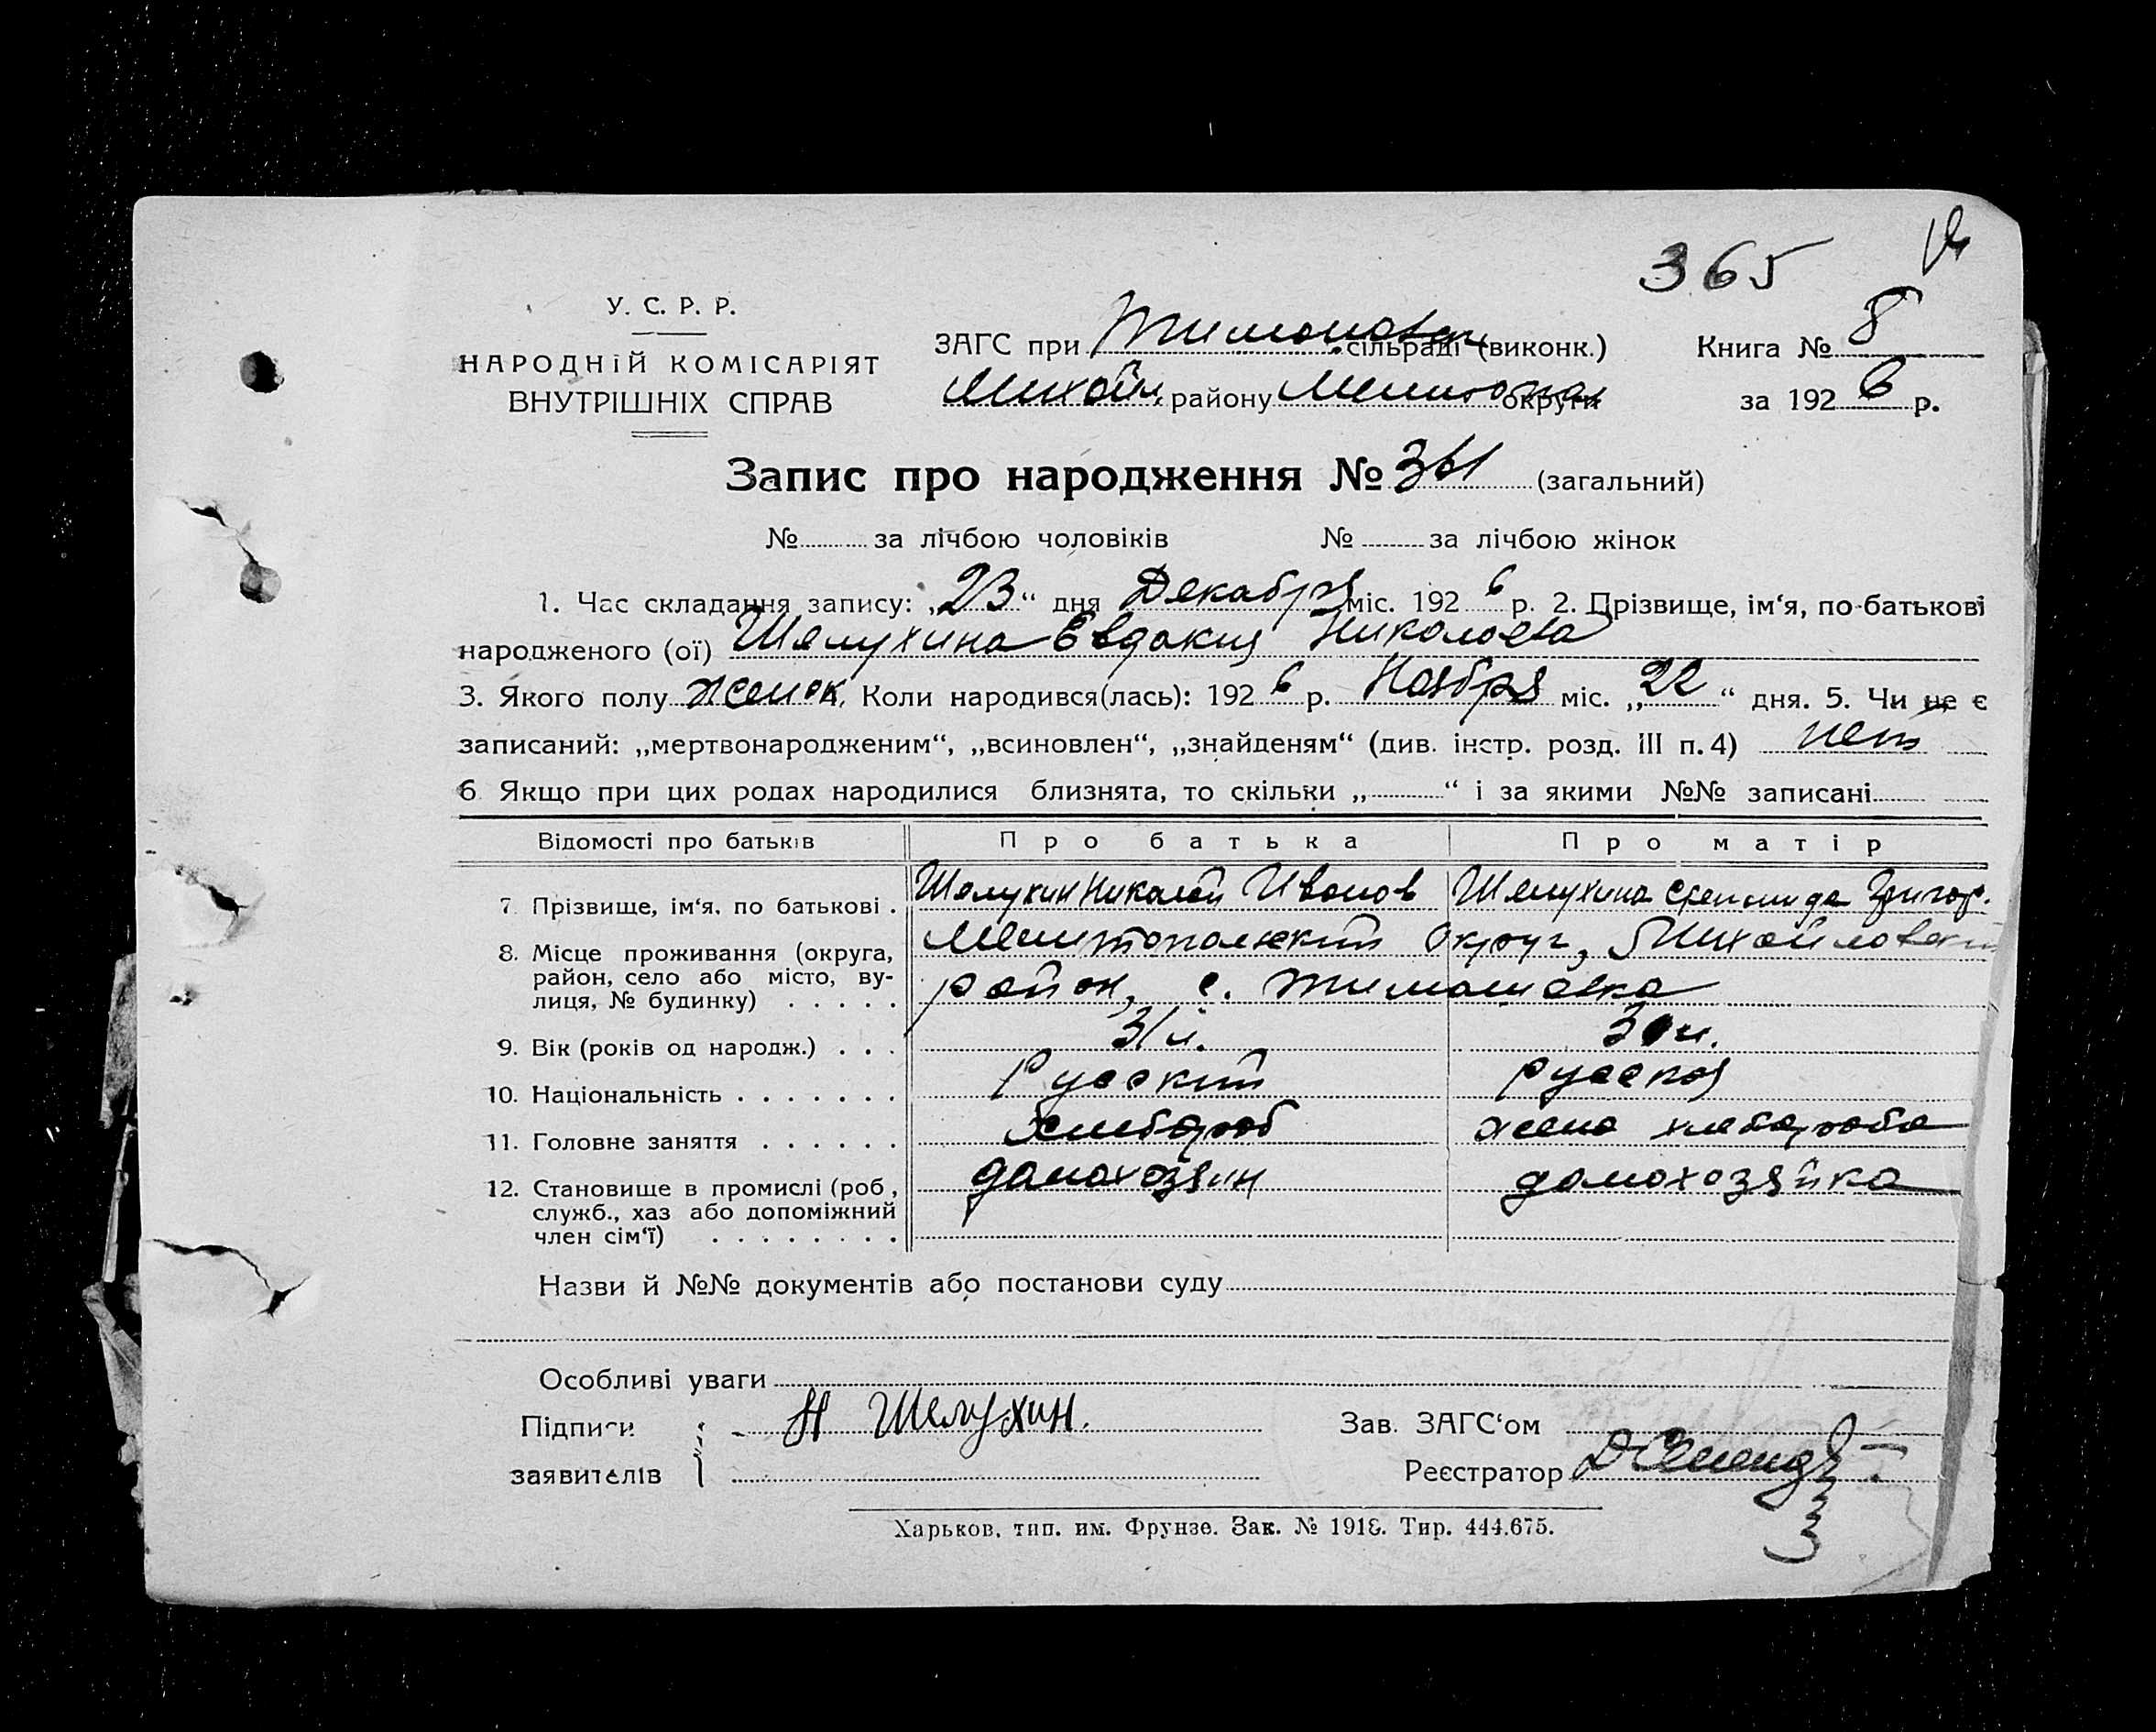 365
У. С. Р. Р.
НАРОДНІЙ КОМІСАРІЯТ
ВНУТРІШНІХ СПРАВ
ЗАГС при Тимошов сільраді (виконк.) Книга № 8
Михайл. району Мелитопол округи за 192 6 р.
Запис про народження № 361 (загальний)
№ за лічбою чоловіків № за лічбою жінок
1. Час складання запису: „23“ дня Декабря міс. 192 6 р. 2. Прізвище, ім‘я, по-батькові
народженого (ої) Шелухина Евдакия Николаева
3. Якого полу женск 4. Коли народився(лась): 192 6 р. Ноября міс. „22“ дня. 5. Чи не є
записаний: „мертвонародженим“, „всиновлен“, „знайденям“ (див. інстр. розд. III п. 4) нет
6 Якщо при цих родах народилися близнята, то скільки „ “ і за якими №№ записані
Відомості про батьків Про батька Про матір
7. Прізвище, ім‘я, по батькові . Шелухин Николай Иванов Шелухина Степанида Григор.
8. Місце проживання (округа, Мелитопольский Округ, Михайловский
район, село або місто, ву- район, с. Тимошовка
лиця, № будинку) . . . . .
9. Вік (років од народж.) . . . 31 л. 30 л.
10. Національність . . . . . . . Русский русская
11. Головне заняття . . . . . . хлебороб жена хлебароба
12. Становище в промислі (роб., домохозяин домохозяйка
служб., хаз або допоміжний
член сім‘ї) . . . . . . . .
Назви й №№ документів або постанови суду
Особливі уваги
Підписи Н Шелухин. Зав. ЗАГС‘ом
заявителів Реєстратор
Харьков, тип. им. Фрунзе. Зак. № 1918. Тир. 444.675.